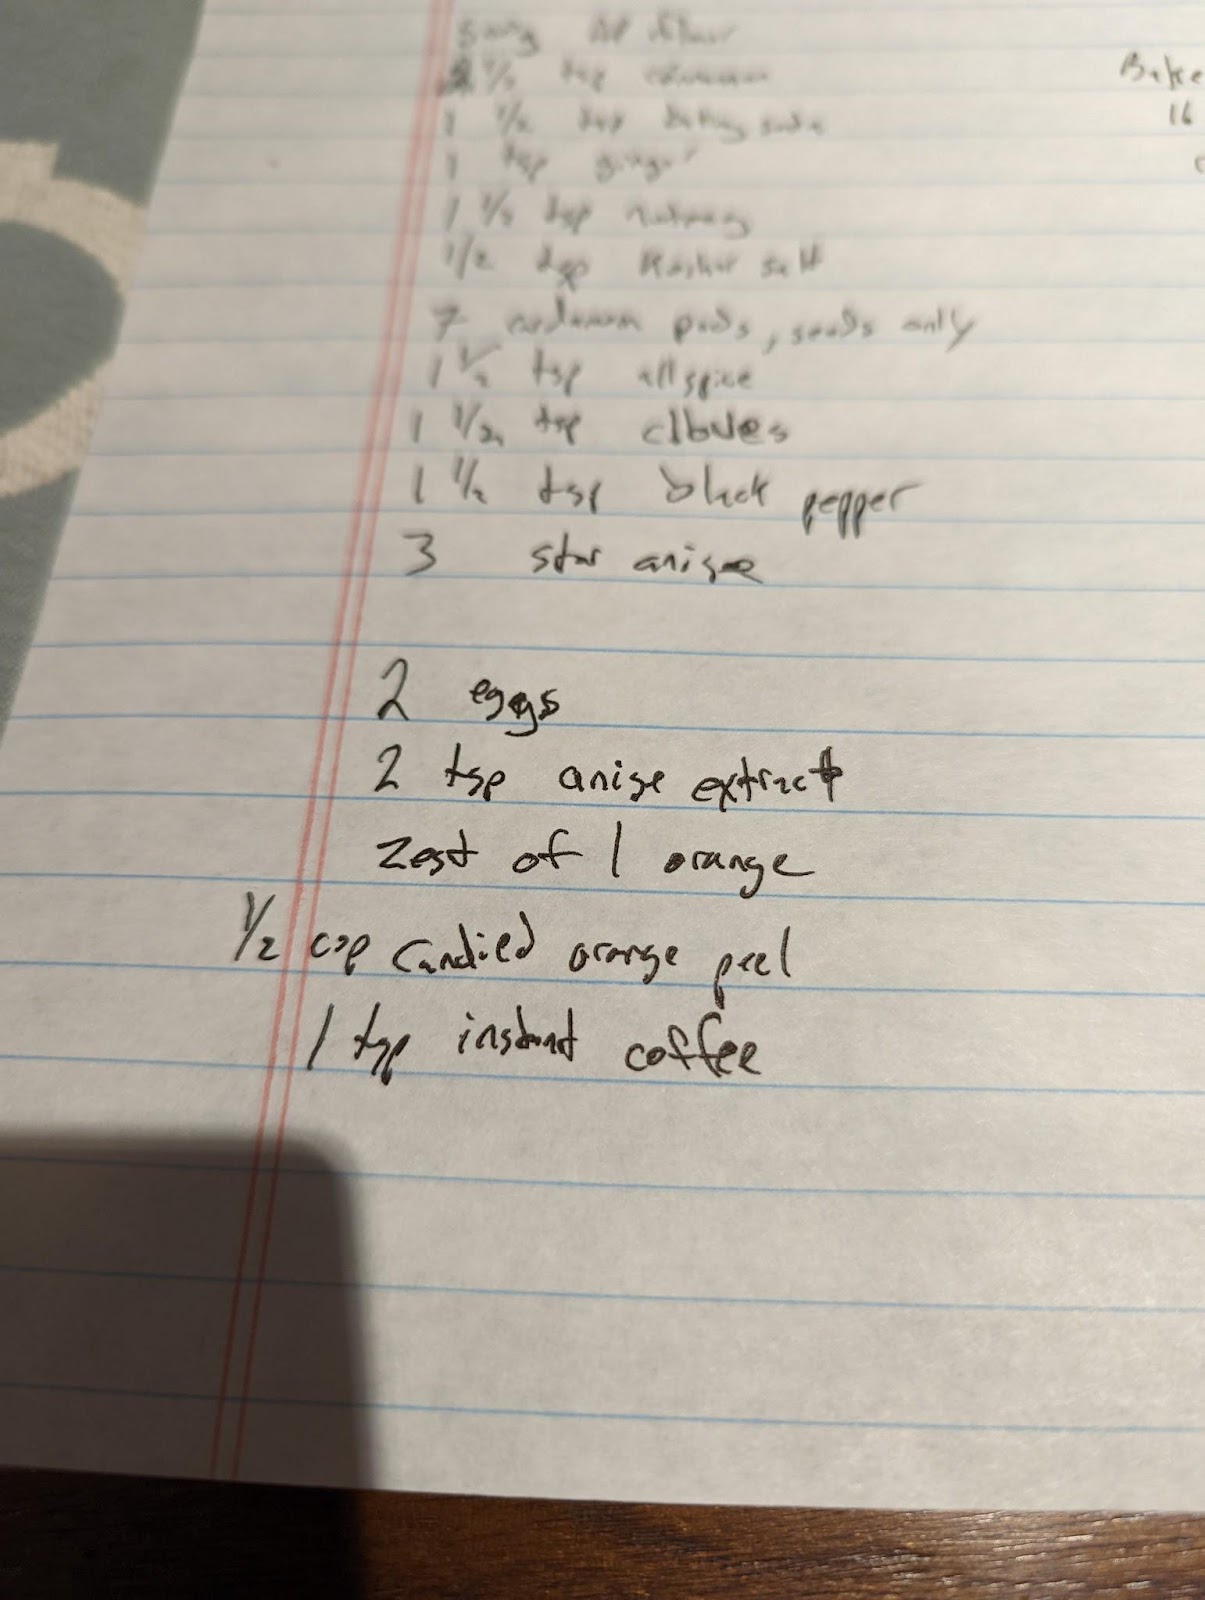 AP flour
tsp cinnamon
Bake
1 1/2 tsp baking soda
16
1 tsp ginger
1 1/2 tsp nutmeg
1/2 tsp Kosher salt
7 cardamom pods, seeds only
1 1/2 tsp allspice
1 1/2 tsp cloves
1 1/2 tsp black pepper
3 star anise
2 eggs
2 tsp anise extract
Zest of 1 orange
1/2 cup candied orange peel
1 tsp instant coffee